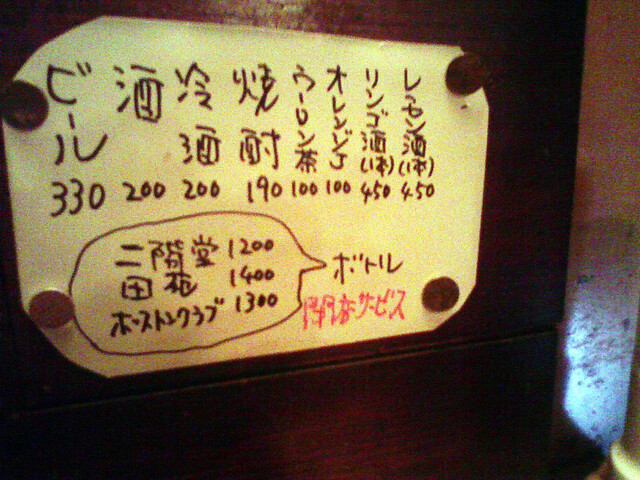 ビール 330
酒 200
冷酒 200
焼酎 190
ウーロン茶 100
オレンジJ 100
リンゴ酒(1本) 450
レモン酒(1本) 450
ボトル
二階堂 1200
田苑 1400
ボストンクラブ 1300
開店サービス